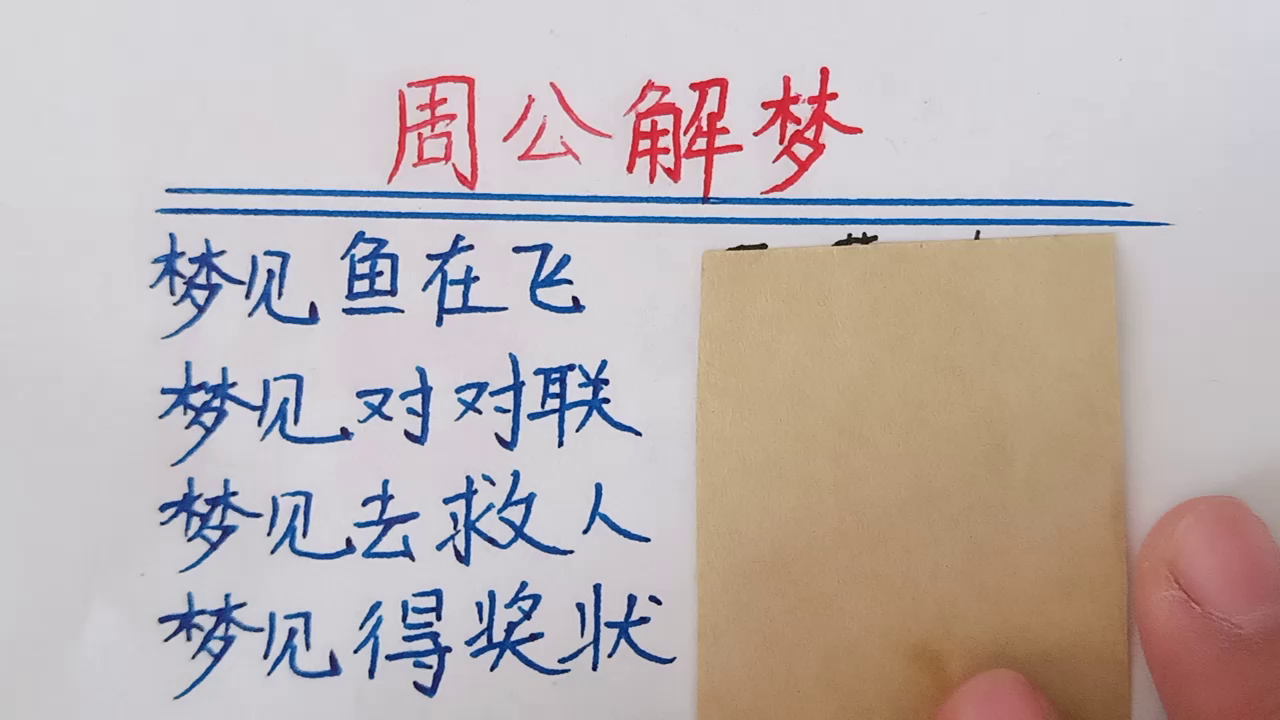 周公解梦
梦见鱼在飞
梦见对对联
梦见去救人
梦见得奖状